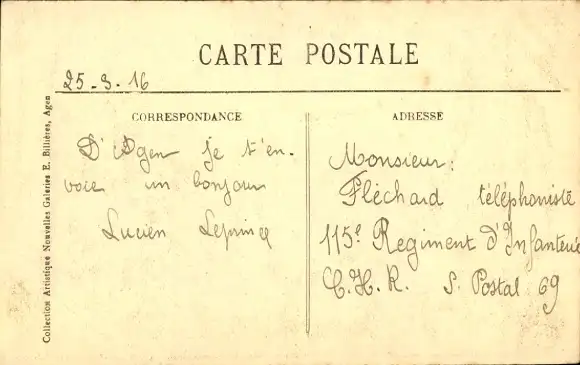 CARTE POSTALE
25-3-16
CORRESPONDANCE
D'Agen je t'en-
voie un bonjour
Lucien Leprince
ADRESSE
Monsieur:
Fléchard téléphoniste
115e Regiment d'Infanterie
C.H.R. S. Postal 69
Collection Artistique Nouvelles Galeries E. Billières, Agen